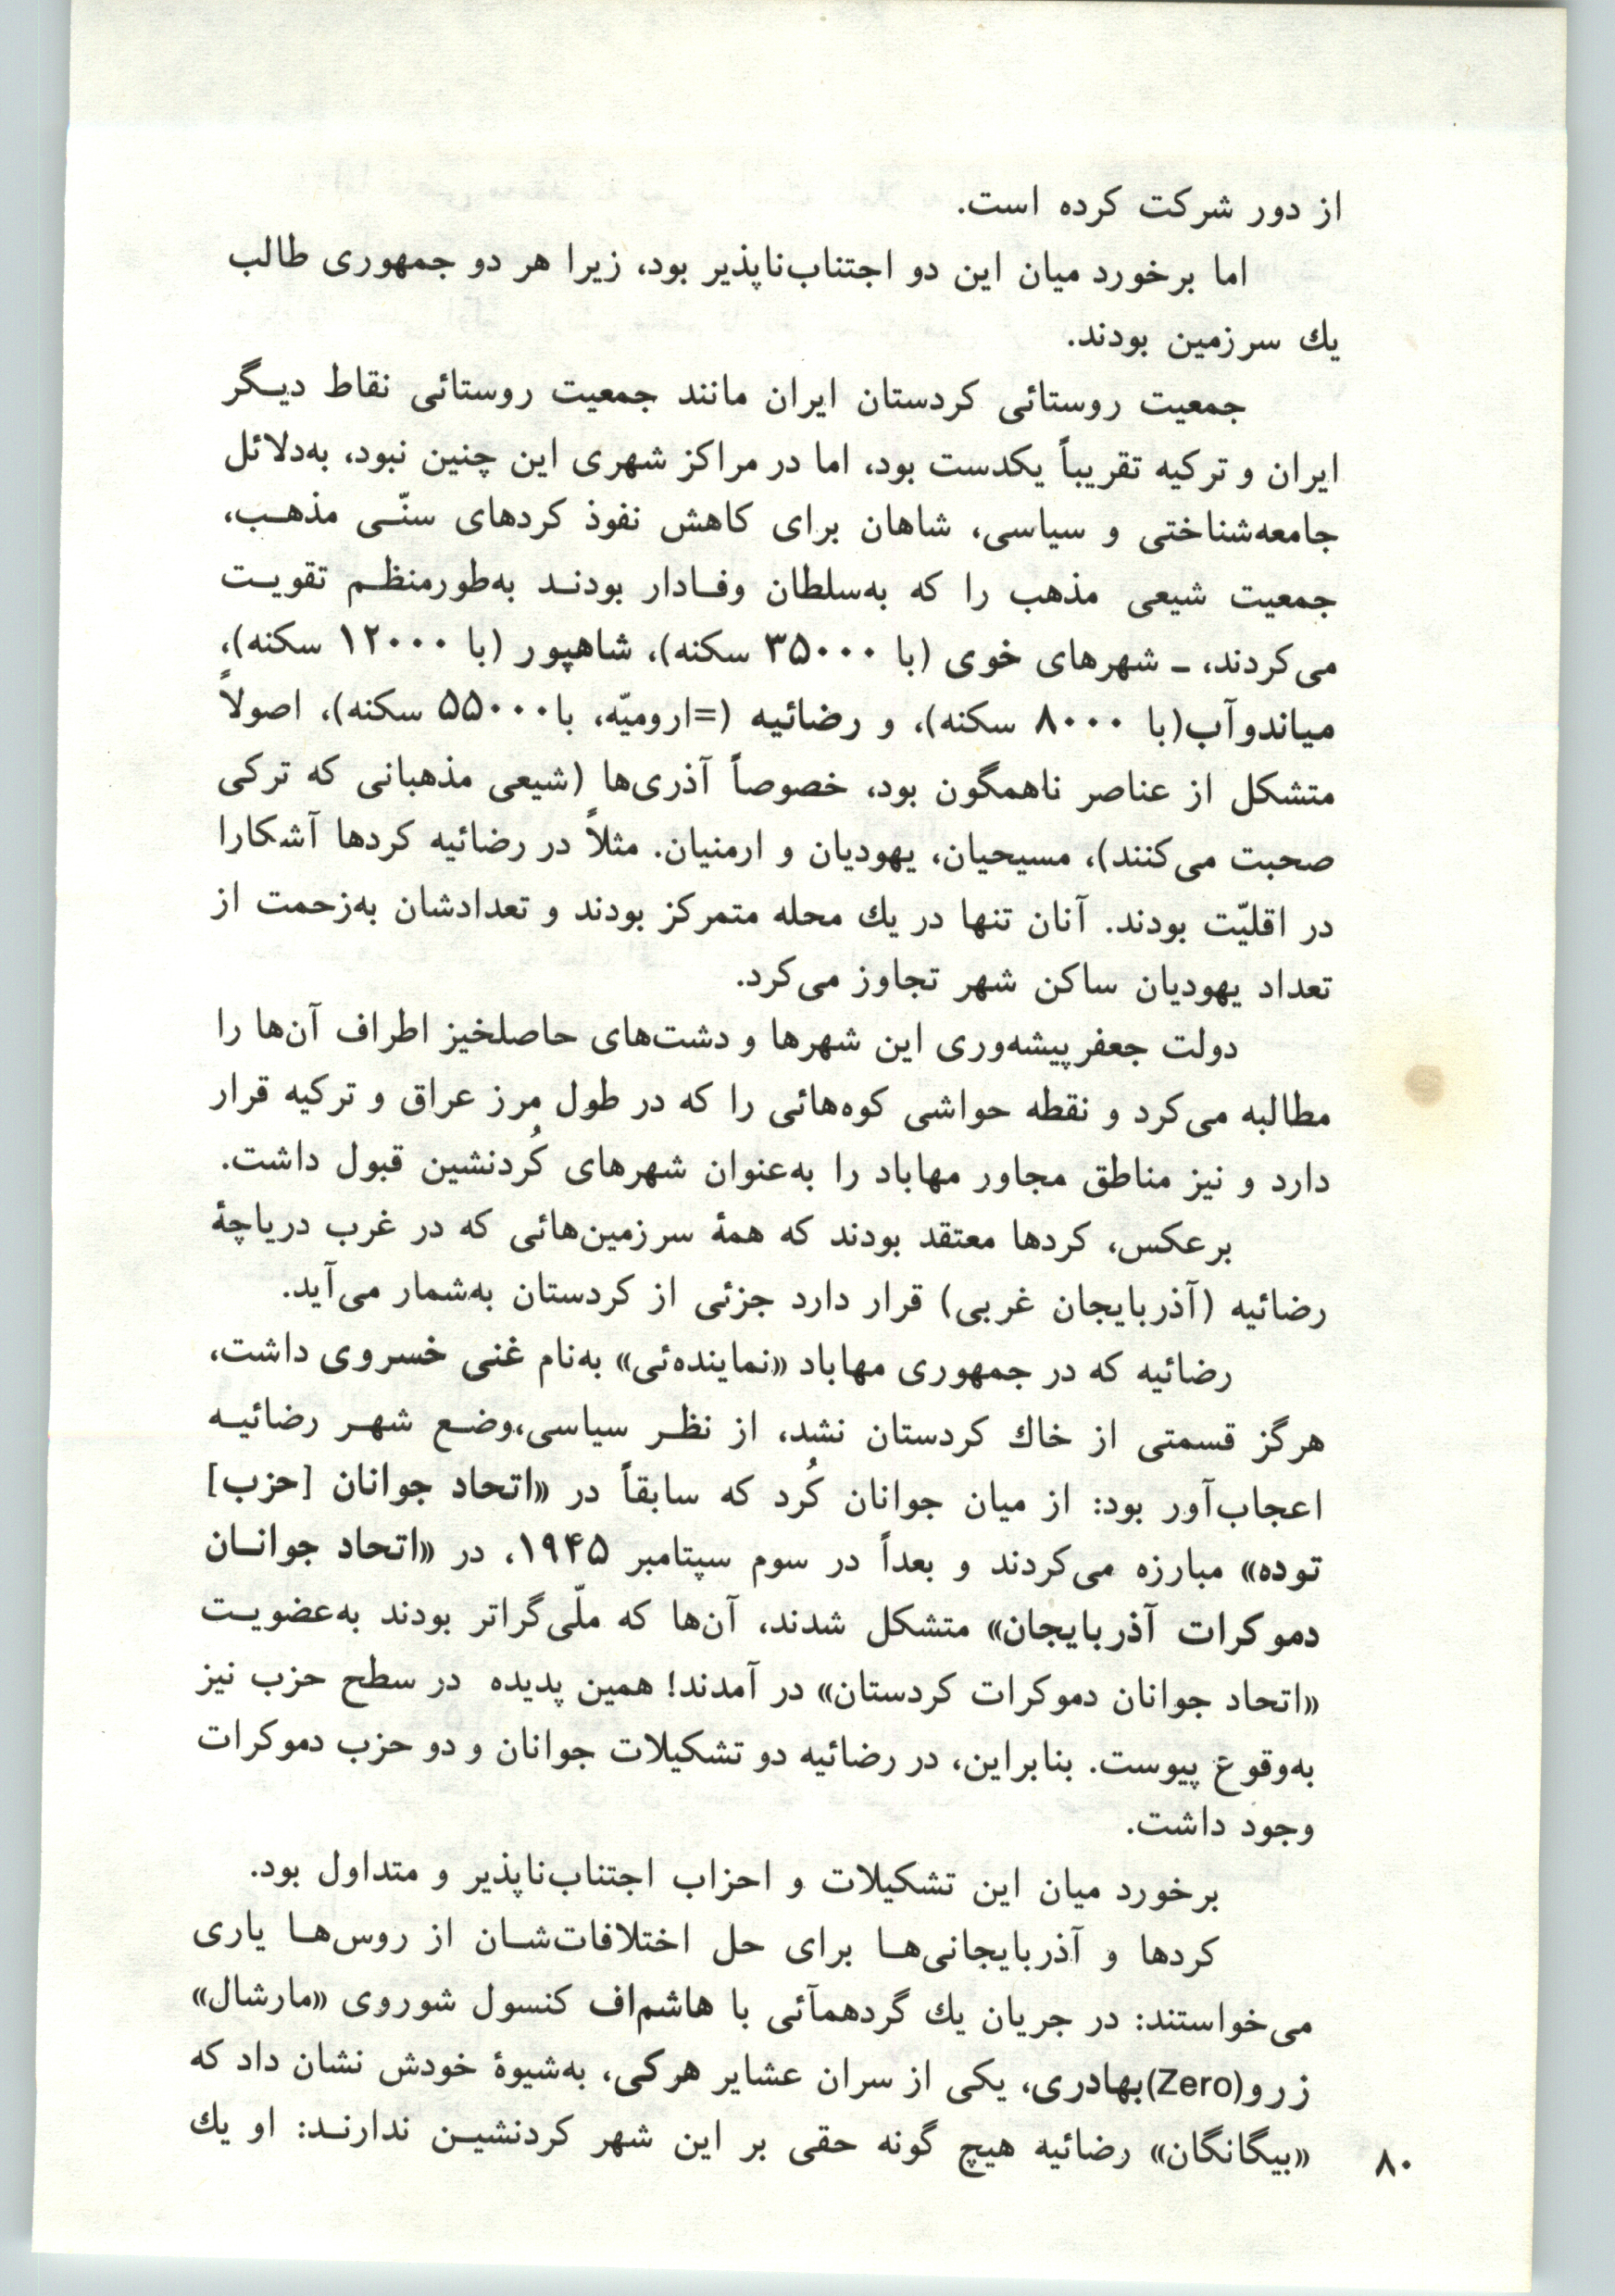 از دور شرکت کرده است.
اما برخورد میان این دو اجتناب‌ناپذیر بود، زیرا هر دو جمهوری طالب
یك سرزمین بودند.
جمعیت روستائی کردستان ایران مانند جمعیت روستائی نقاط دیـگر
ایران و ترکیه تقریباً یکدست بود، اما در مراکز شهری این چنین نبود، به‌دلائل
جامعه‌شناختی و سیاسی، شاهان برای کاهش نفوذ کردهای سنّـی مذهـب،
جمعیت شیعی مذهب را که به‌سلطان وفـادار بودنـد به‌طورمنظـم تقویـت
می‌کردند، ـ شهرهای خوی (با ۳۵۰۰۰ سکنه)، شاهپور (با ۱۲۰۰۰ سکنه)،
میاندوآب(با ۸۰۰۰ سکنه)، و رضائیه (=ارومیّه، با۵۵۰۰۰ سکنه)، اصولاً
متشکل از عناصر ناهمگون بود، خصوصاً آذری‌ها (شیعی مذهبانی که ترکی
صحبت می‌کنند)، مسیحیان، یهودیان و ارمنیان. مثلاً در رضائیه کردها آشکارا
در اقلیّت بودند. آنان تنها در یك محله متمرکز بودند و تعدادشان به‌زحمت از
تعداد یهودیان ساکن شهر تجاوز می‌کرد.
دولت جعفرپیشه‌وری این شهرها و دشت‌های حاصلخیز اطراف آن‌ها را
مطالبه می‌کرد و نقطه حواشی کوه‌هائی را که در طول مرز عراق و ترکیه قرار
دارد و نیز مناطق مجاور مهاباد را به‌عنوان شهرهای کُردنشین قبول داشت.
برعکس، کردها معتقد بودند که همهٔ سرزمین‌هائی که در غرب دریاچهٔ
رضائیه (آذربایجان غربی) قرار دارد جزئی از کردستان به‌شمار می‌آید.
رضائیه که در جمهوری مهاباد «نماینده‌ئی» به‌نام غنی خسروی داشت،
هرگز قسمتی از خاك کردستان نشد، از نظـر سیاسی،وضـع شهـر رضائیـه
اعجاب‌آور بود: از میان جوانان کُرد که سابقاً در «اتحاد جوانان [حزب]
توده» مبارزه می‌کردند و بعداً در سوم سپتامبر ۱۹۴۵، در «اتحاد جوانـان
دموکرات آذربایجان» متشکل شدند، آن‌ها که ملّی‌گراتر بودند به‌عضویـت
«اتحاد جوانان دموکرات کردستان» در آمدند! همین پدیده در سطح حزب نیز
به‌وقوع پیوست. بنابراین، در رضائیه دو تشکیلات جوانان و دو حزب دموکرات
وجود داشت.
برخورد میان این تشکیلات و احزاب اجتناب‌ناپذیر و متداول بود.
کردها و آذربایجانی‌هـا برای حل اختلافات‌شـان از روس‌هـا یاری
می‌خواستند: در جریان یك گردهمآئی با هاشم‌اف کنسول شوروی «مارشال»
زرو(Zero)بهادری، یکی از سران عشایر هرکی، به‌شیوهٔ خودش نشان داد که
«بیگانگان» رضائیه هیچ گونه حقی بر این شهر کردنشیـن ندارنـد: او یك
۸۰